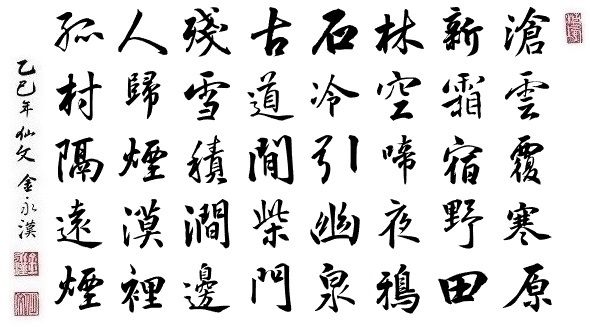 滄雲覆寒原
新霜宿野田
林空啼夜鴉
石冷引幽泉
古道間柴門
殘雪積澗邊
人歸煙漠裡
孤村隔遠煙
乙巳年 仙文 金永漢